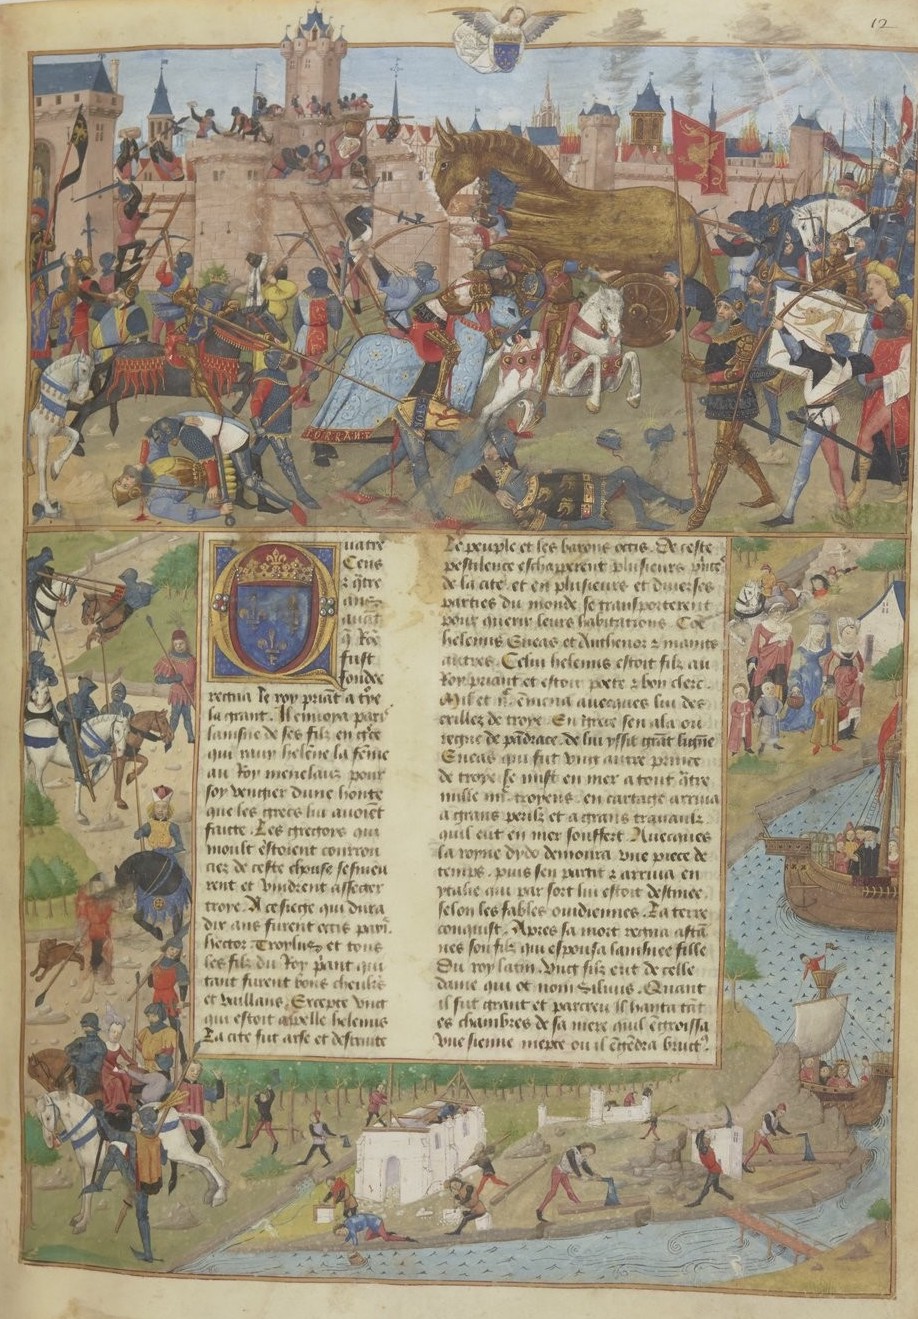 12
LORRANT
Quatre
Cens
⁊ q̃tre
ans
auāt
q̃ Rōe
fust
fondee
regna le roy priāt a t͂ye
la grant. Il enuoya paris
laisne de ses filz en g̃ce
qui rauy helene la fēme
au Roy menelaus pour
soy vengier dune honte
que les grecs lui auoiēt
faicte. Les gregoys qui
moult estoient courrou
ciez de ceste chouse sesmeu
rent et vindrent assegier
troye. A ce siege qui dura
dix ans furent occis priāt.
hector Troylus et tous
les filz du Roy priant qui
tant furent bons cheulrs
et vaillans. Excepte vng
qui estoit appelle helenus
La cite fut arse et destruite
Le peuple et les barons occis. De ceste
pestilence eschaperent plusieurs prīces
de la cite. et en plusieurs et diuerses
parties du monde se transporterent
pour querir leurs habitations Cōe
helenus Eneas et Anthenor ⁊ maints
autres. Celui helenus estoit filz au
Roy priant et estoit poete ⁊ bon clerc.
Mil et ii͂ͨ ēmena auecques lui des
exillez de troye. En grece sen ala ou
regne de pādrace. de lui yssit grāt ligne
Eneas qui fut vng autre prince
de troye se mist en mer a tout q̃tre
mille iiiͨ troyens. en cartage arriua
a grans perilz et a grans trauaulx
quil eut en mer souffert. Auecques
la royne dydo demoura vne piece de
temps. puis sen partit ⁊ arriua en
ytalie qui par sort lui estoit destinee.
selon les fables ouidiennes. La terre
conquist. Apres sa mort regna ascā
nes son filz qui espousa lauinee fille
Du roy latin. vng filz eut de celle
dame qui et nom Siluus. Quant
il fut grant et parcreu il hanta tāt
es chambres de sa mere quil ēgroissa
vne sienne niepce ou il ēgēdra brut9.